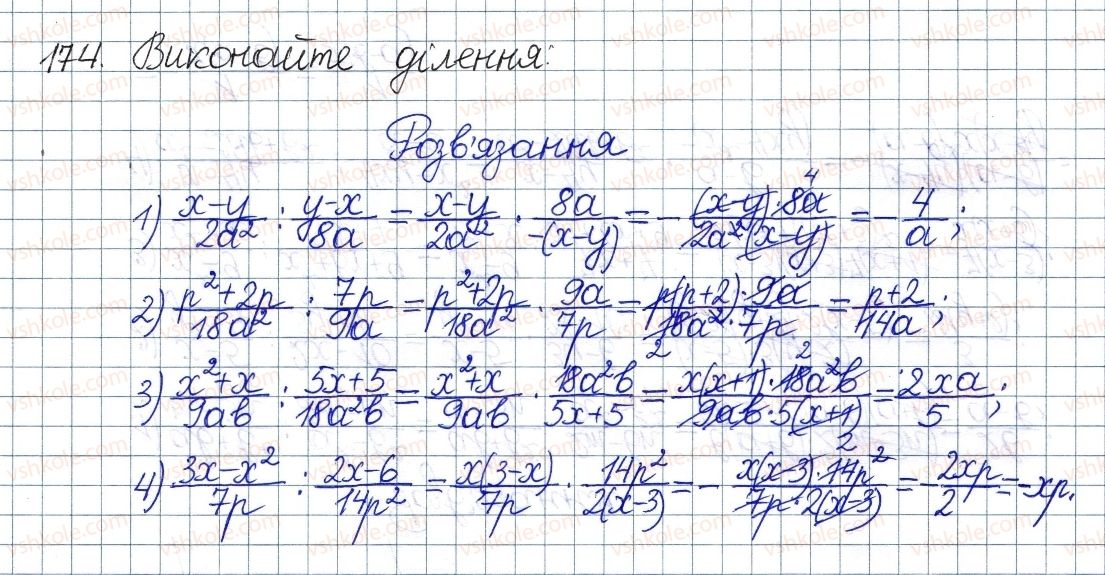 174. Виконайте ділення:
Розв'язання
1) (x-y)/(2a²) : (y-x)/(8a) = (x-y)/(2a²) · (8a)/(-(x-y)) = - ((x-y)·8a)/(2a²(x-y)) 4 = - 4/a ;
2) (p²+2p)/(18a²) : (7p)/(9a) = (p²+2p)/(18a²) · (9a)/(7p) = (p(p+2)·9a)/(18a²·7p) 2 = (p+2)/(14a) ;
3) (x²+x)/(9ab) : (5x+5)/(18a²b) = (x²+x)/(9ab) · (18a²b)/(5x+5) = (x(x+1)·18a²b)/(9ab·5(x+1)) 2 = (2xa)/5 ;
4) (3x-x²)/(7p) : (2x-6)/(14p²) = (x(3-x))/(7p) · (14p²)/(2(x-3)) = - (x(x-3)·14p²)/(7p·2(x-3)) 2 = - (2xp)/2 = -xp.
vshkole.com